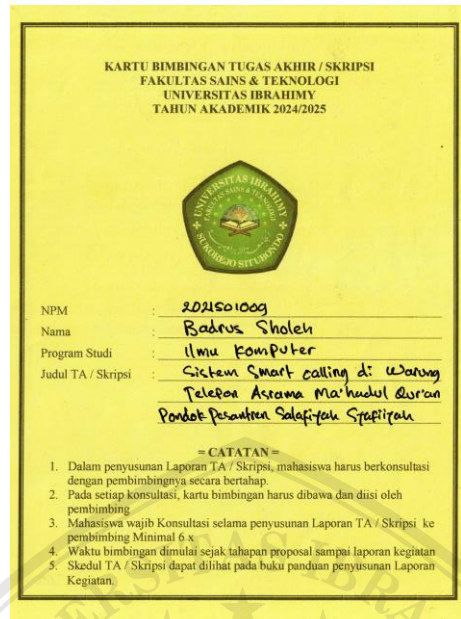 KARTU BIMBINGAN TUGAS AKHIR / SKRIPSI
FAKULTAS SAINS & TEKNOLOGI
UNIVERSITAS IBRAHIMY
TAHUN AKADEMIK 2024/2025
UNIVERSITAS IBRAHIMY
FAKULTAS SAINS & TEKNOLOGI
SUKOREJO SITUBONDO
NPM : 2021501009
Nama : Badrus Sholeh
Program Studi : Ilmu Komputer
Judul TA / Skripsi : Sistem Smart calling di Warung
Telepon Asrama Ma'hadul Qur'an
Pondok Pesantren Salafiyah Syafi'iyah
= CATATAN =
1. Dalam penyusunan Laporan TA / Skripsi, mahasiswa harus berkonsultasi
dengan pembimbingnya secara bertahap.
2. Pada setiap konsultasi, kartu bimbingan harus dibawa dan diisi oleh
pembimbing
3. Mahasiswa wajib Konsultasi selama penyusunan Laporan TA / Skripsi ke
pembimbing Minimal 6 x
4. Waktu bimbingan dimulai sejak tahapan proposal sampai laporan kegiatan
5. Skedul TA / Skripsi dapat dilihat pada buku panduan penyusunan Laporan
Kegiatan.